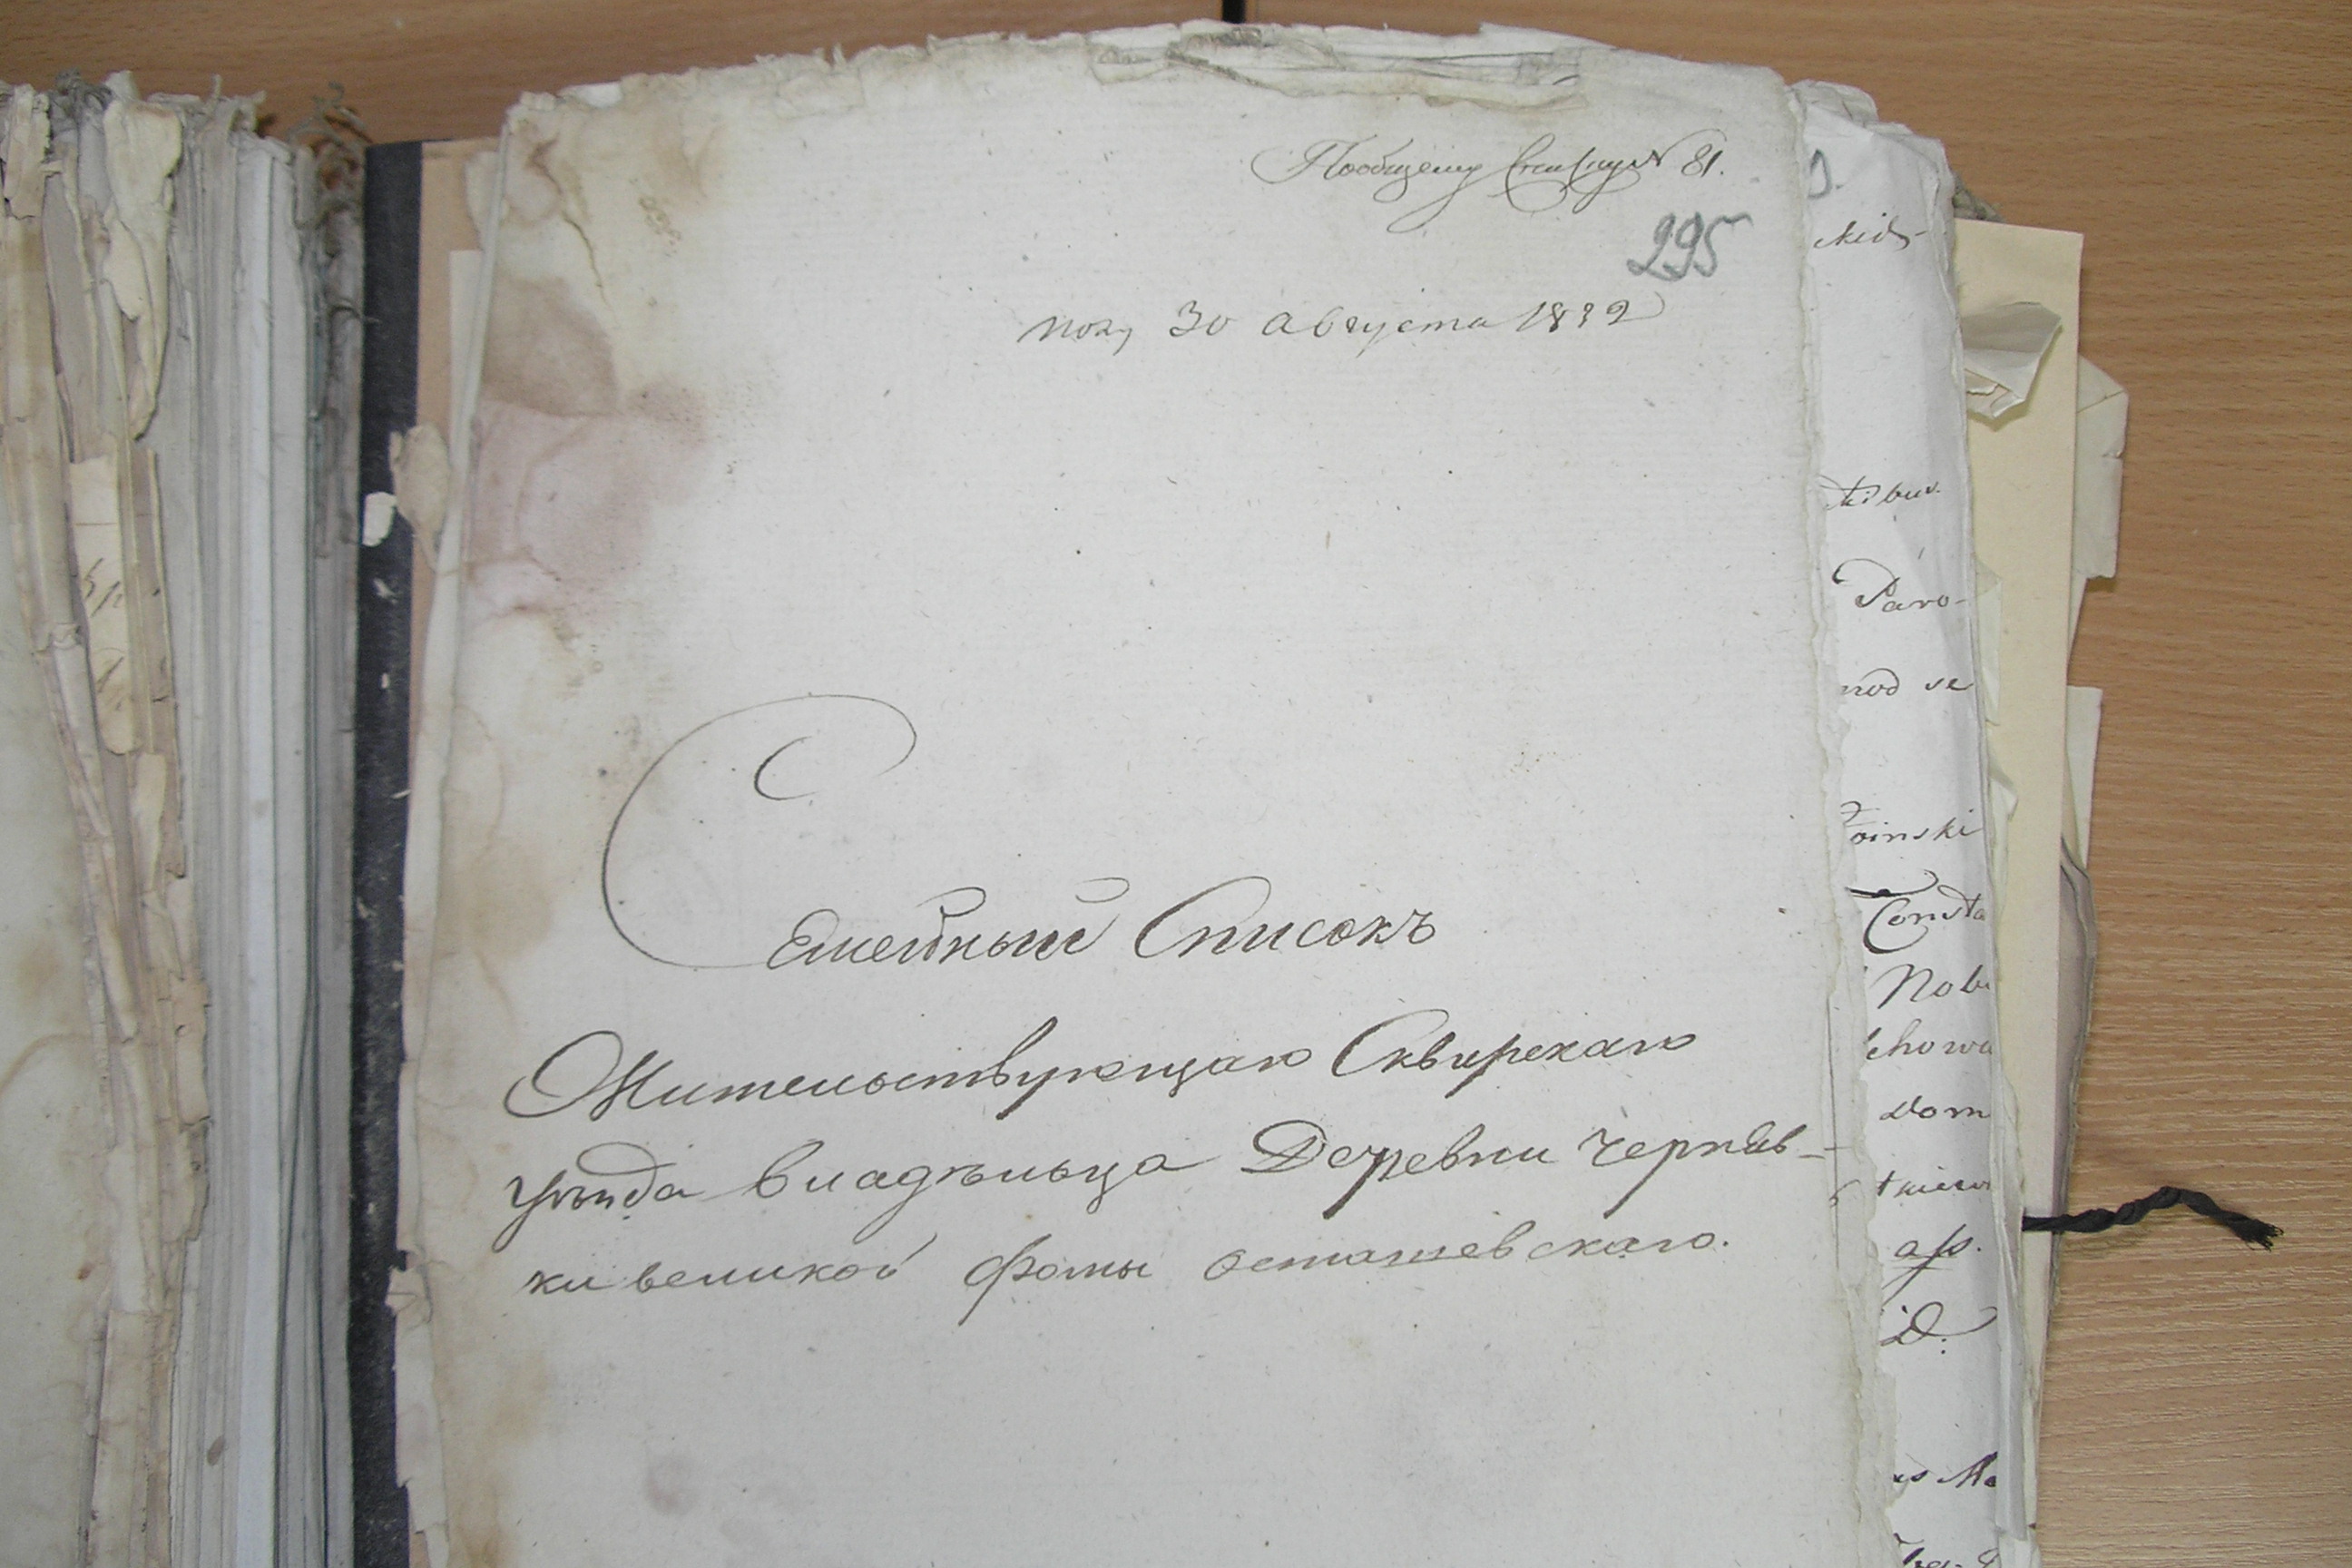 Пообщему Списку № 81.
295
пол, 30 августа 1832
Семейный Списокъ
Жительствующаго Сквирскаго
уѣзда владѣльца Деревни Чернѣв-
ки великой Фомы Осташевскаго.
Paro-
nod se
oinski
Consta
Nob
chowa
Dom
D: